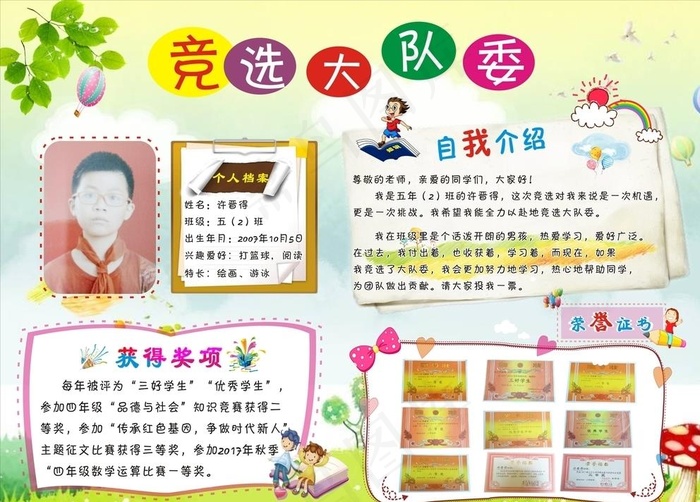 竞选大队委
个人档案
姓名：许晋得
班级：五（2）班
出生年月：2007年10月5日
兴趣爱好：打篮球，阅读
特长：绘画、游泳
自我介绍
尊敬的老师，亲爱的同学们，大家好！
我是五年（2）班的许晋得，这次竞选对我来说是一次机遇，
更是一次挑战。我希望我能全力以赴地竞选大队委。
我在班级里是个活泼开朗的男孩，热爱学习，爱好广泛。
在过去，我付出着，也收获着，学习着，而现在，如果
我竞选了大队委，我会更加努力地学习，热心地帮助同学，
为团队做出贡献。请大家投我一票。
获得奖项
每年被评为“三好学生”“优秀学生”，
参加四年级“品德与社会”知识竞赛获得二
等奖，参加“传承红色基因，争做时代新人”
主题征文比赛获得三等奖，参加2017年秋季
“四年级数学运算比赛一等奖。
荣誉证书